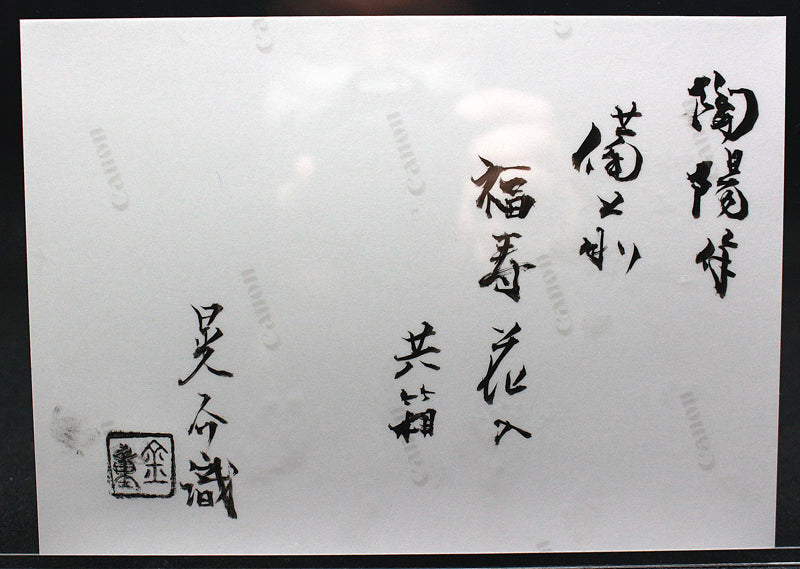 陶陽作
備前
福寿花入
共箱
晃介識
金重
Canon
Canon
Canon
Canon
Canon
Canon